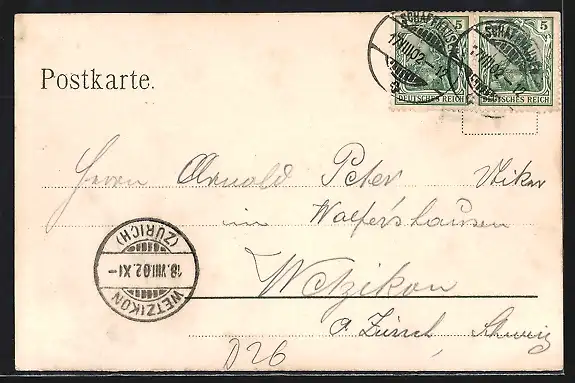 5 5
SCHAFFHAUSEN 17.VIII.02-12
SCHAFFHAUSEN 17.VIII.02-12
DEUTSCHES REICH DEUTSCHES REICH
Postkarte.
Herrn Arnold Peter
im Walfershausen
(ZÜRICH)
18.VIII.02.XI-
WETZIKON
Wetzikon
Ct. Zürich, Schweiz
D26